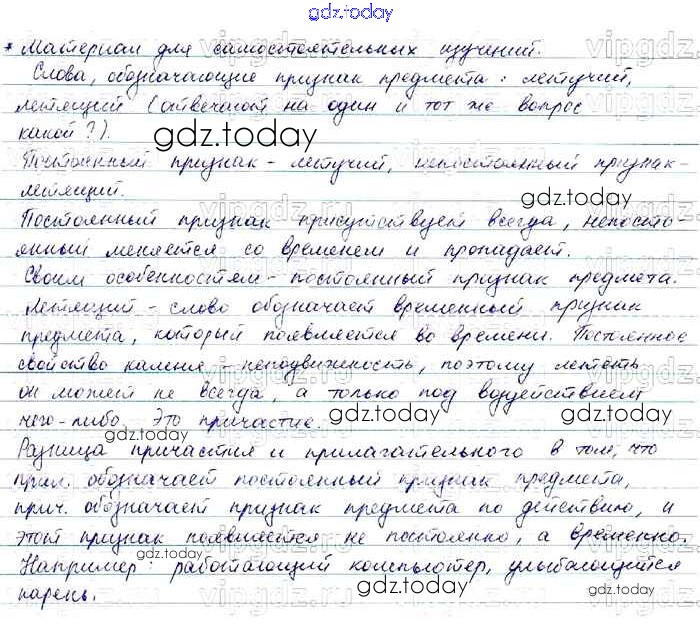 gdz.today
* Материал для самостоятельных изучений.
Слова, обозначающие признак предмета: летучий,
летящий (отвечают на один и тот же вопрос
какой?).
gdz.today
Постоянный признак - летучий, непостоянный признак -
летящий.
gdz.today
Постоянный признак присутствует всегда, непосто-
янный меняется со временем и пропадает.
gdz.today
Своим особенностям - постоянный признак предмета.
Летящий - слово обозначает временный признак
предмета, который появляется во времени. Постоянное
свойство камня - неподвижность, поэтому летать
он может не всегда, а только под воздействием
чего-либо. Это причастие.
gdz.today
gdz.today
gdz.today
Разница причастия и прилагательного в том, что
прил. обозначает постоянный признак предмета,
прич. обозначает признак предмета по действию, и
этот признак появляется не постоянно, а временно.
gdz.today
Например: работающий компьютер, улыбающийся
парень.
gdz.today
gdz.today